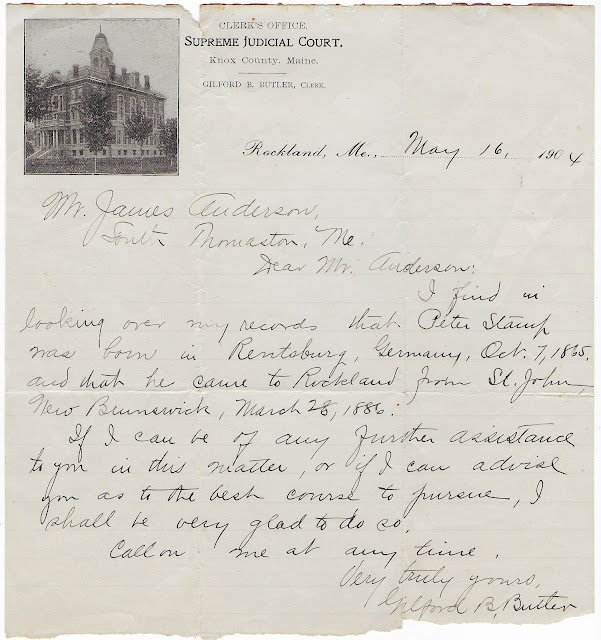 CLERK'S OFFICE,
SUPREME JUDICIAL COURT.
KNOX COUNTY, MAINE.
GILFORD B. BUTLER, CLERK.
Rockland, Me., May 16, 1904
Mr. James Anderson,
South Thomaston, Me.
Dear Mr. Anderson;
I find in
looking over my records that Peter Stamp
was born in Rentsburg, Germany, Oct. 7, 1865,
and that he came to Rockland from St. John,
New Brunswick, March 28, 1886.
If I can be of any further assistance
to you in this matter, or if I can advise
you as to the best course to pursue, I
shall be very glad to do so.
Call on me at any time.
Very truly yours,
Gilford B. Butler